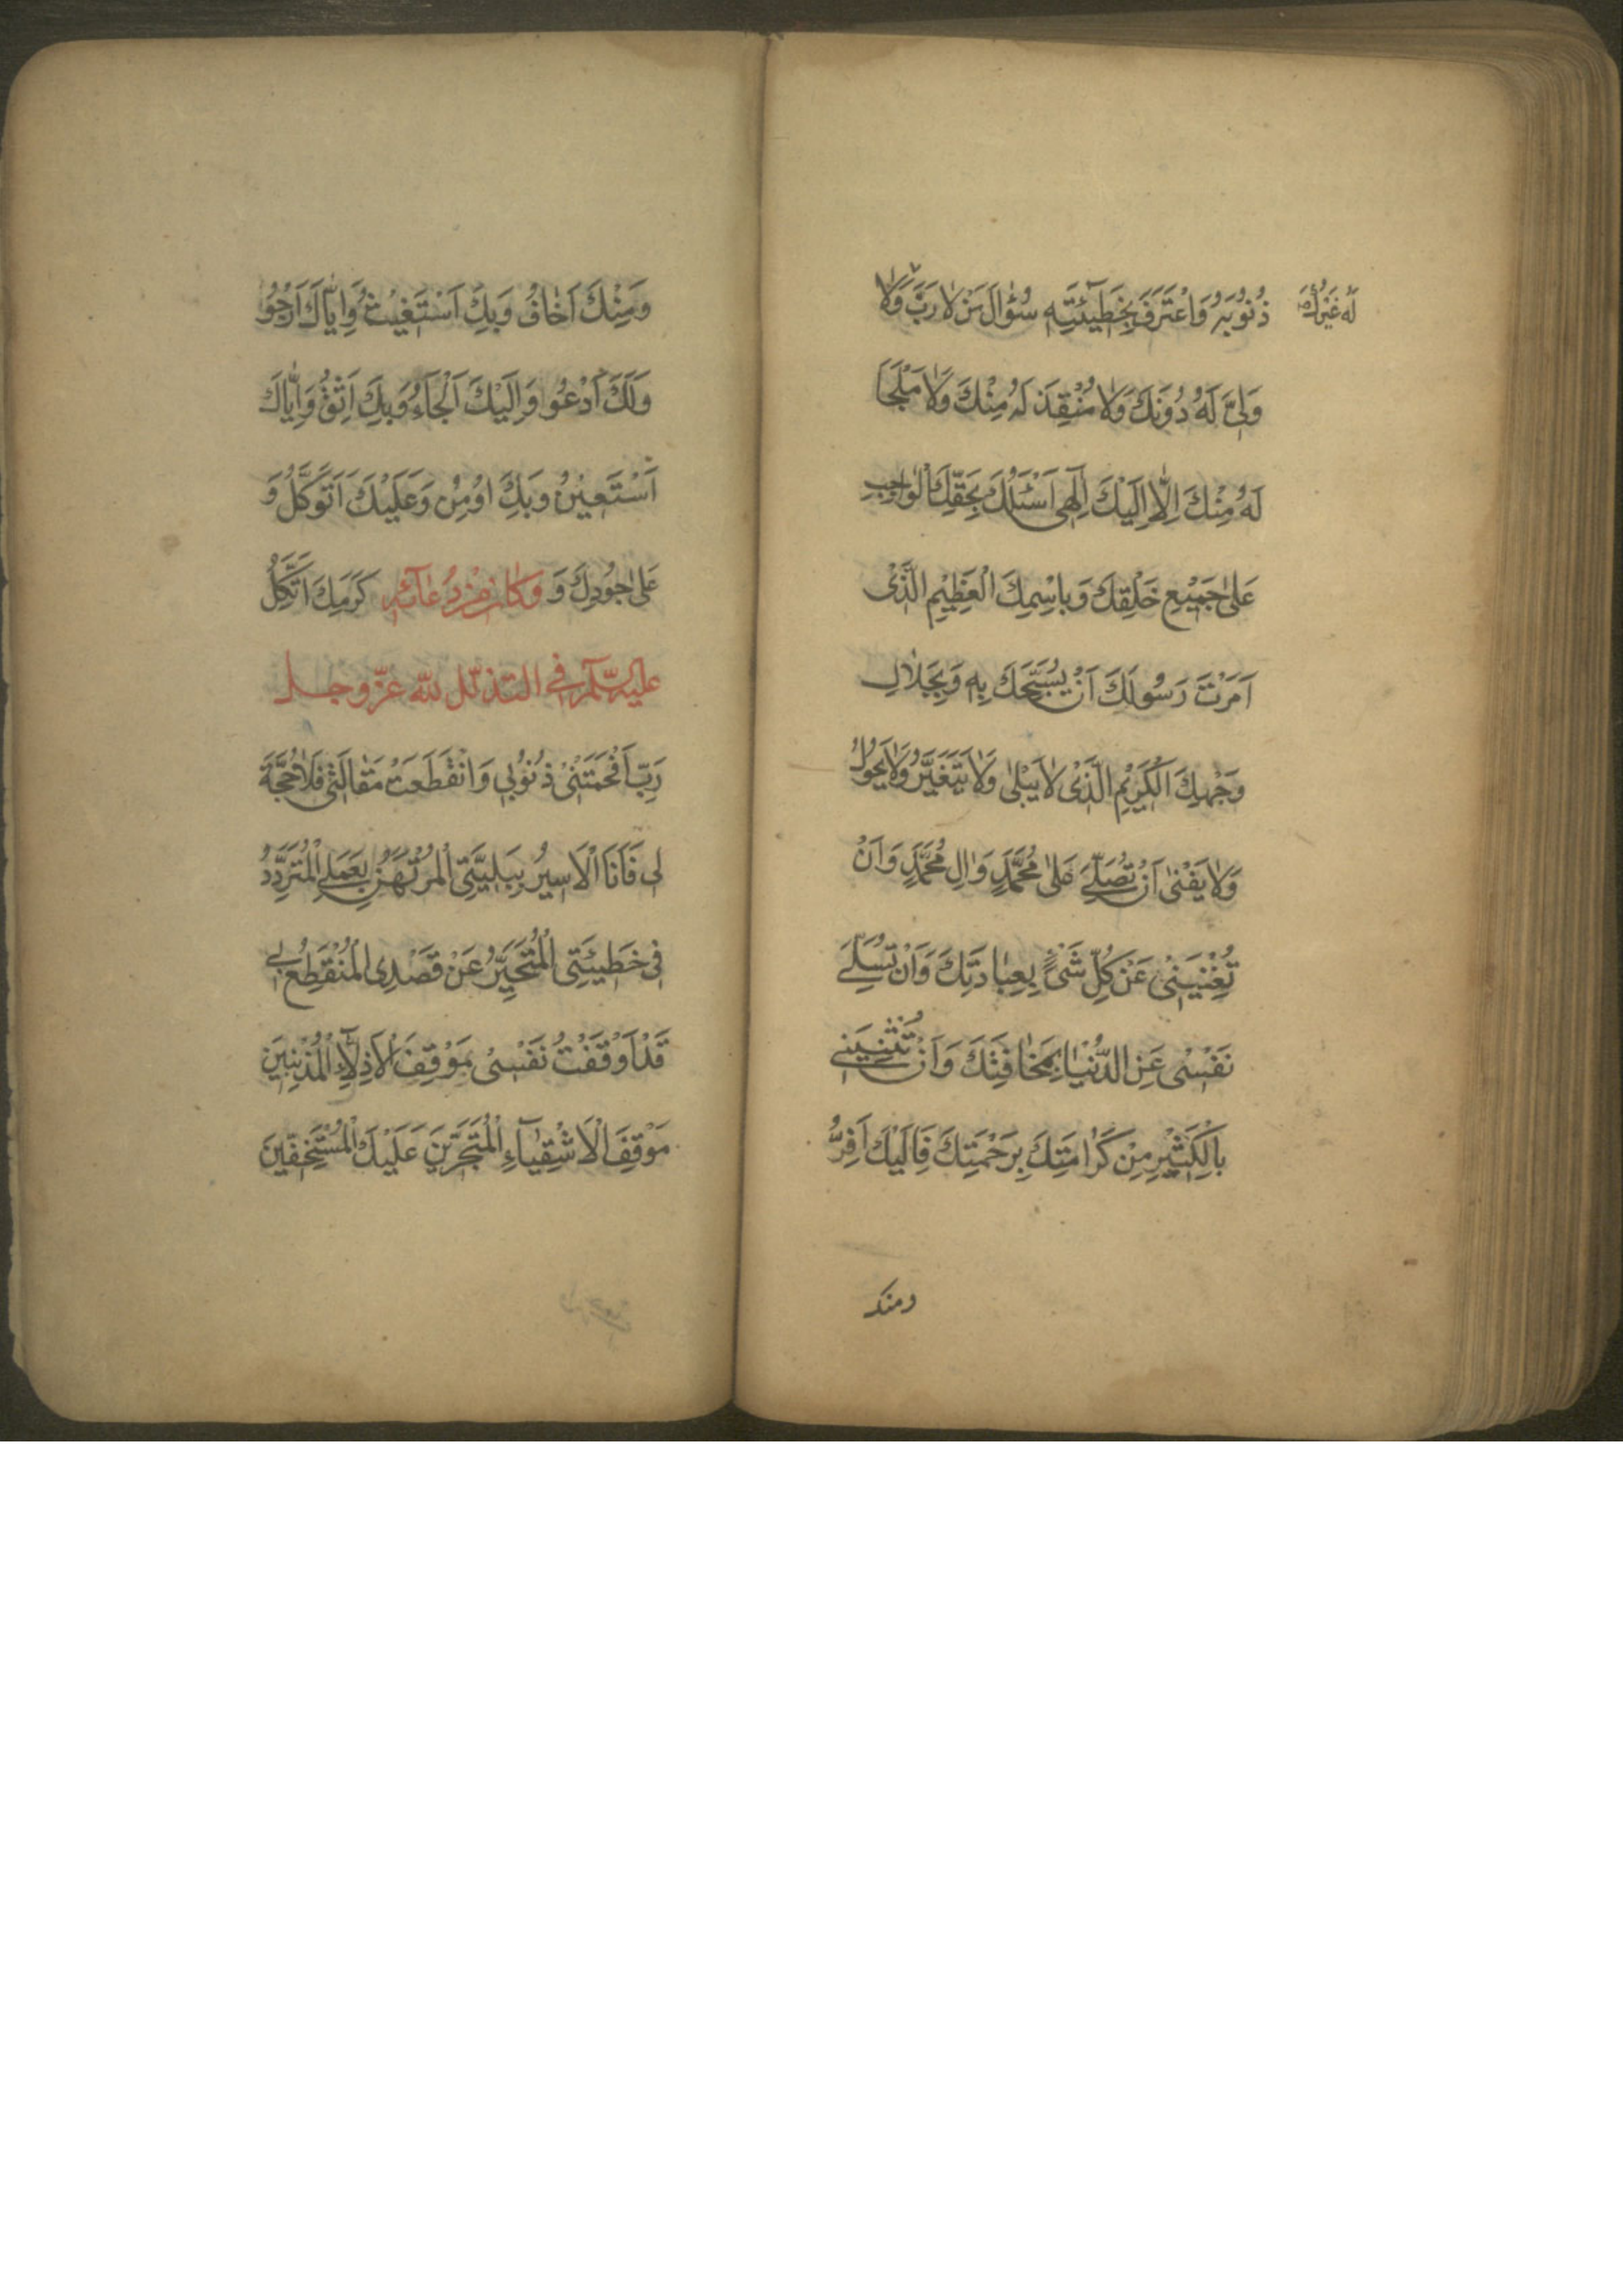 ذُنُوبُهُ وَاعْتَرَفَ بِخَطِيٓئَتِهِ سُؤٰالَ مَنْ لاٰ رَبَّ وَلاٰ
لَهُ غَيْرُكَ
وَلِىَّ لَهُ دُونَكَ وَلاٰ مُنْقِذَ لَهُ مِنْكَ وَلاٰ مَلْجَاَ
لَهُ مِنْكَ اِلّاٰ اِلَيْكَ اِلٰهِى اَسْئَلُكَ بِحَقِّكَ الْوٰاجِبِ
عَلىٰ جَمْيعِ خَلْقِكَ وَبِاسْمِكَ الْعَظِيْمِ الَّذْى
اَمَرْتَ رَسُولَكَ اَنْ يُسَبِّحَكَ بِهِ وَبِجَلاٰلِ
وَجْهِكَ الْكَرِيْمِ الَّذْى لاٰ يَبْلىٰ وَلاٰ يَتَغَيَّرُ وَلاٰ يَحُولُ
وَلاٰ يَفْنىٰ اَنْ تُصَلِّىَ عَلىٰ مُحَمَّدٍ وَاٰلِ مُحَمَّدٍ وَاَنْ
تُغْنِيَنِىْ عَنْ كُلِّ شَىْءٍ بِعِبٰادَتِكَ وَاَنْ تُسَلِّىَ
نَفْسْى عَنِ الدُّنْيٰا بِمَخٰافَتِكَ وَاَنْ تُثْنِيَنِى
بِالْكَثْيِرِ مِنْ كَرٰامَتِكَ بِرَحْمَتِكَ فَاِلَيْكَ اَفِرُّ
ومنك
وَمِنْكَ اَخٰافُ وَبِكَ اَسْتَغِيْثُ وَاِيّٰاكَ اَرْجُوُ
وَلَكَ اَدْعُو وَاِلَيْكَ اَلْجَاَءُ وَبِكَ اَثِقُ وَاِيّٰاكَ
اَسْتَعِيْنُ وَبِكَ اُومِنُ وَعَلَيْكَ اَتَوَكَّلُ وَ
عَلىٰ جُودِكَ وَ كَرَمِكَ اَتَّكِلُ وَكَانَ مِنْ دُعٰآئِهِ
عليه السّلم فى التذلّل للّه عزّ وجل
رَبِّ اَفْحَمَتْنىْ ذُنُوُبِى وَانْقَطَعَتْ مَقٰالَتْى فَلاٰ حُجَّةَ
لِى فَاَنَا الْاَسِيُر بِبَلِيَّتِى الْمُرْتَهَنُ بِعَمَلِى الْمُتَرَدِّدُ
فِى خَطِيئَتِى الْمُتَحَيِّرُ عَنْ قَصْدِى الْمُنْقَطِعُ بِى
قَدْ اَوْقَفْتُ نَفْسْى مَوْقِفَ الْاَذِلّآءِ الْمُذْنِبِينَ
مَوْقِفَ الْاَشْقِيٰآءِ الْمُتَجَرِّيَن عَلَيْكَ الْمُسْتَخِفّيَن